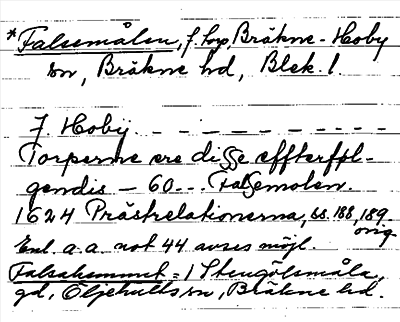 *Falsemålen, f. torp, Bräkne-Hoby
sn, Bräkne hd, Blek. l.
J. Hobÿ - - - - - - - - -
Torperne ere diße effterføl-
gendis - 60 - - Falßemolen.
1624 Prästrelationerna, ss. 188, 189.
orig.
Enl. a.a. not 44 avses möjl.
Falsahemmet = 1 Stengölsmåla,
gd, Öljehults sn, Bräkne hd.